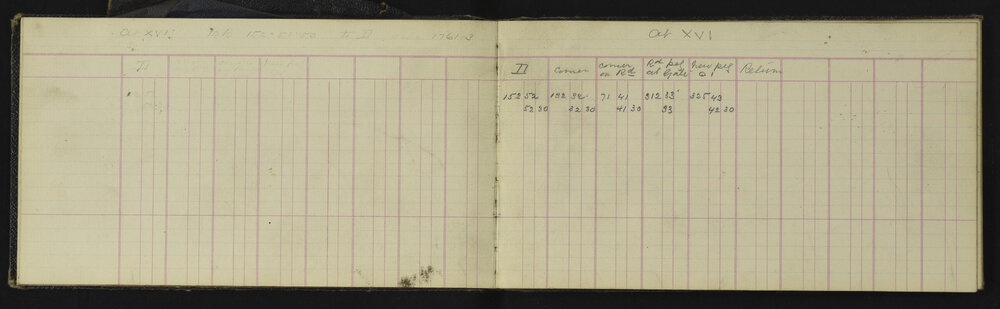 at XVI 152 51 50 to II 1761.3
II
at XVI
II corner corner on Rd Rd peg at Gate New peg 01 Return
152 52 152 32 71 41 312 33 325 43
52 30 32 30 41 30 33 42 30